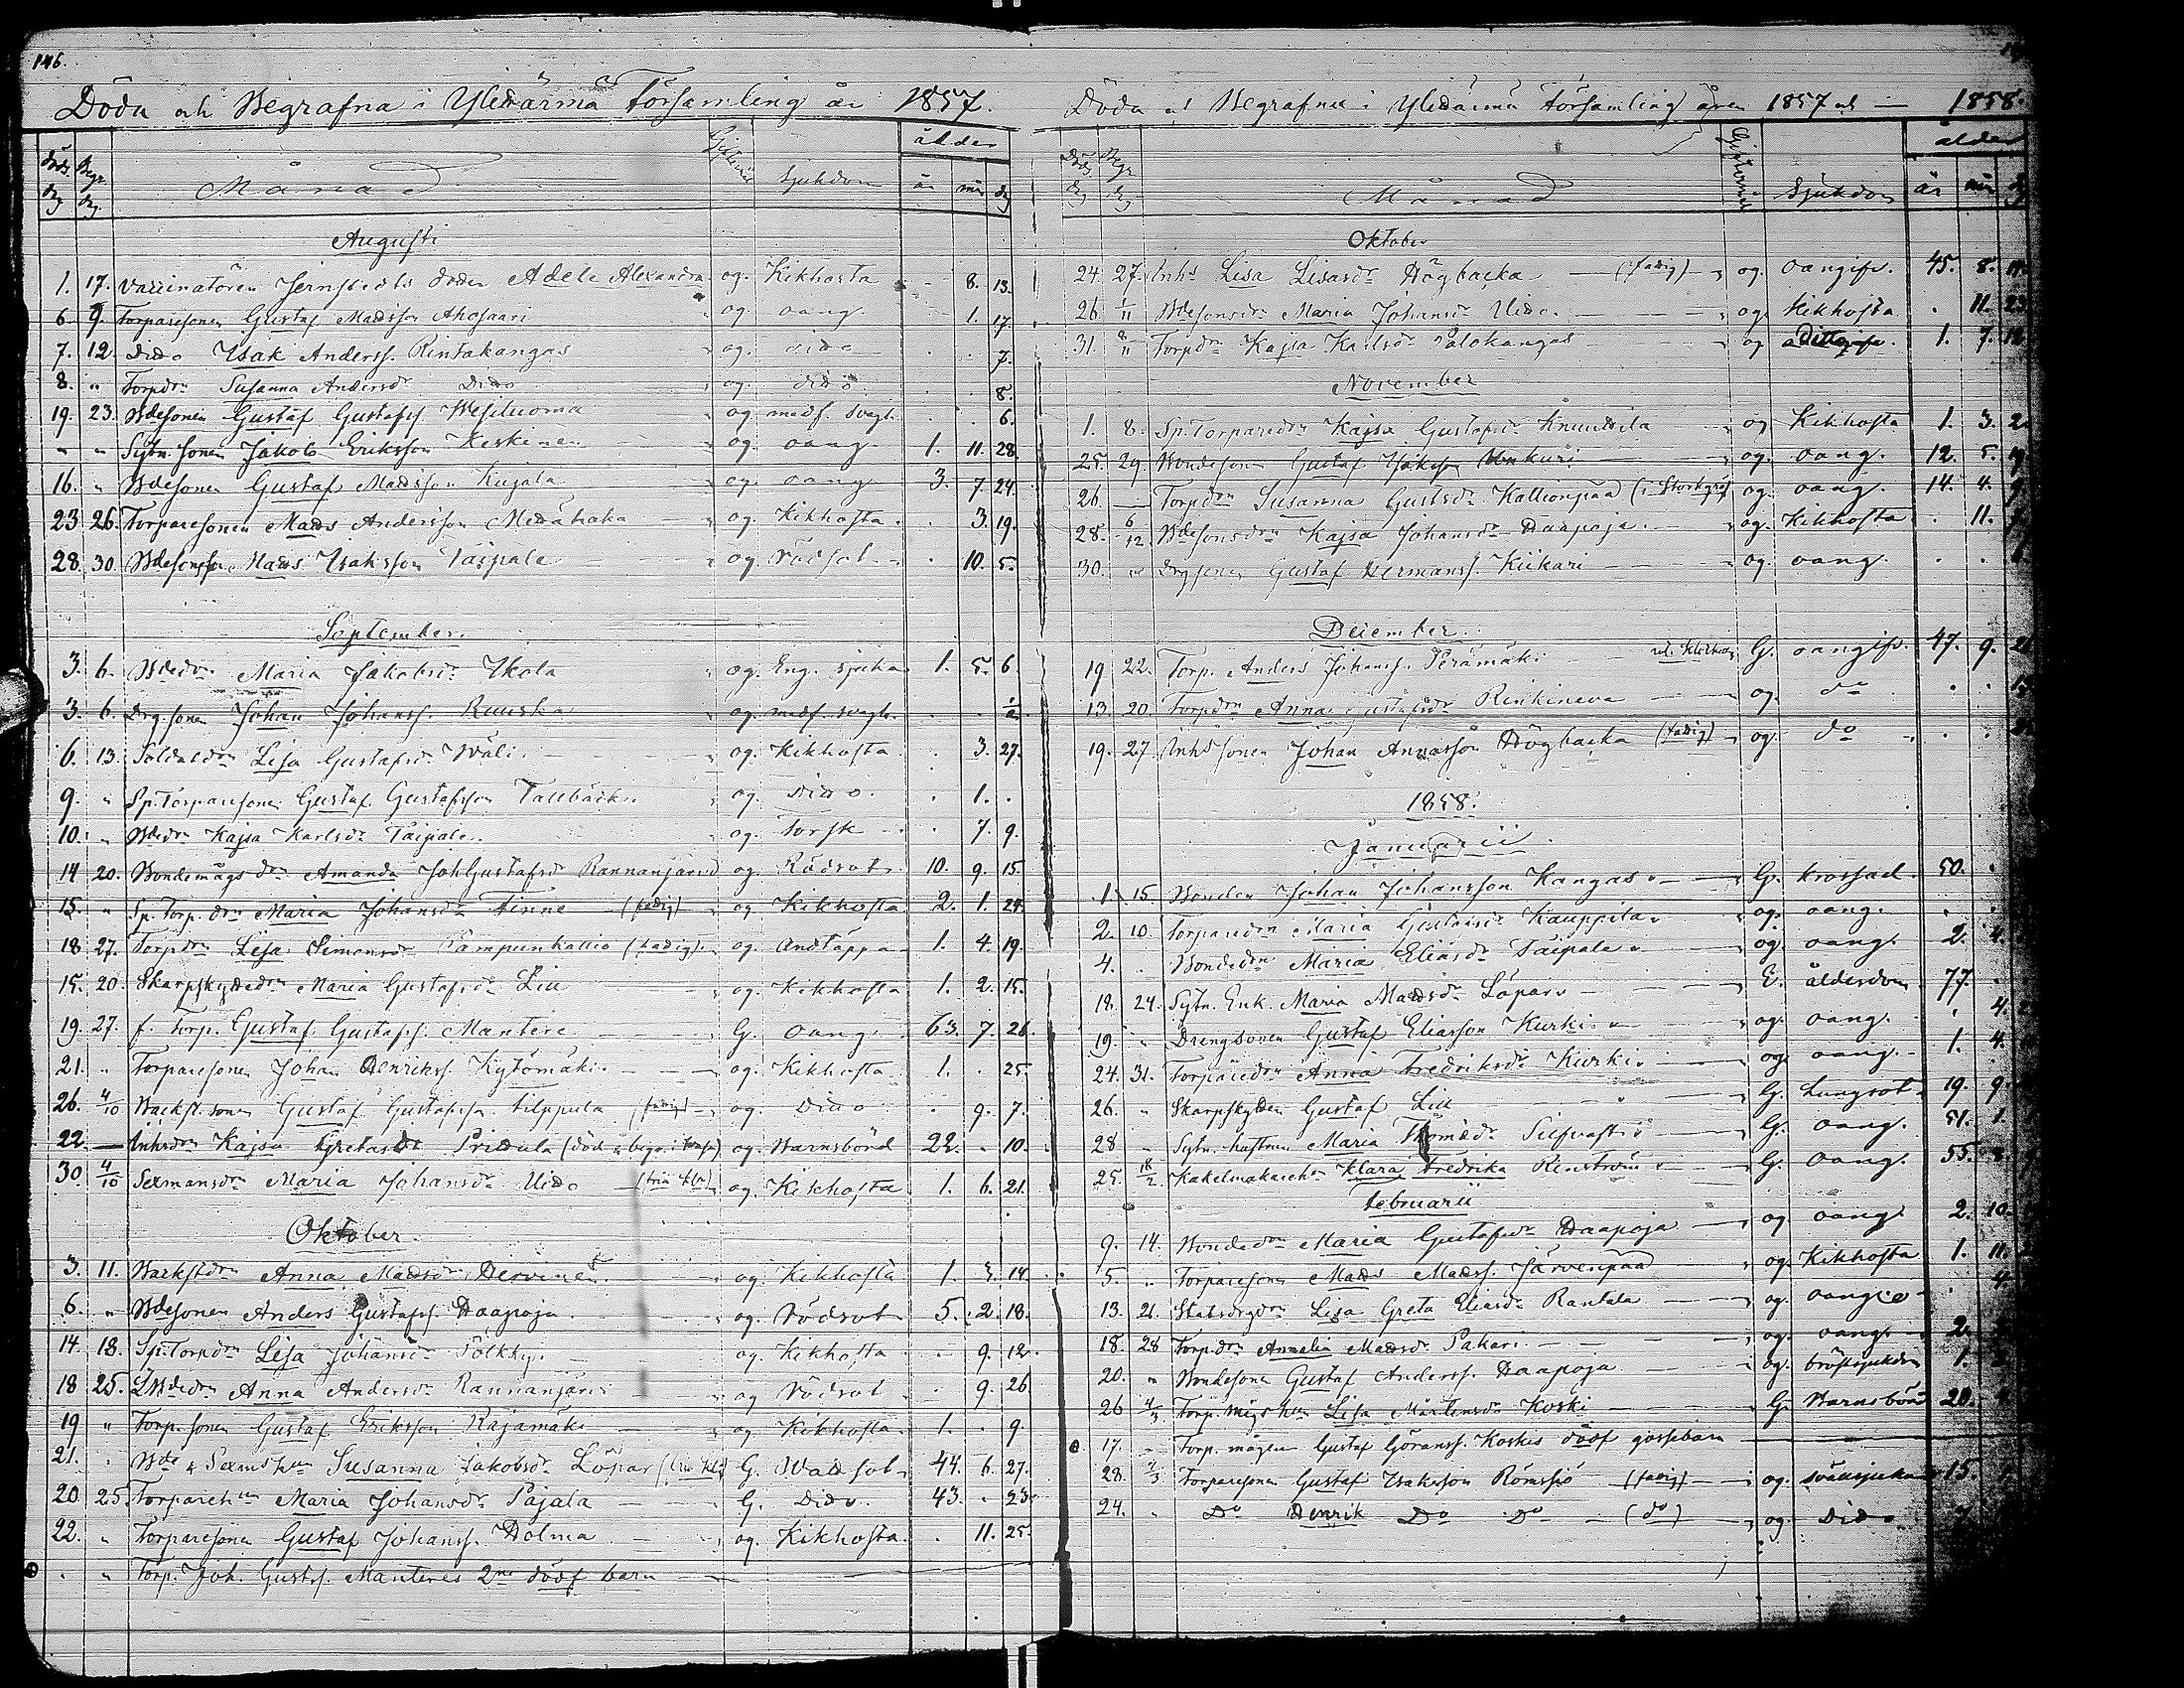 146.
Döda och Begrafna i Ylihärmä Församling år 1857.
Döds dag Begr. dag Månad Sjukdom ålder år mån dag
Augusti
1. 17. Vaccinatören Jernstedts doter Adele Alexandra og. Kikhosta - 8. 13.
6. 9. Torparesonen Gustaf Madsson Ahosaari og oang. - 1. 17.
7. 12. Dido Isak Anderss. Rintakangas og. dido . . 7.
8. " Torpdn Susanna Andersdr Dido og. dido . . 8.
19. 23. Bdesonen Gustaf Gustafss. Wesiluoma og. medf. svagh. . . 6.
" " Sytn. sonen Jakob Eriksson Keskinen og oang. 1. 11. 28.
16. " Bdesonen Gustaf Madsson Kujala og oang 3. 7. 24.
23. 26. Torparesonen Mads Andersson og. Kikhosta . 3. 19.
28. 30. Bdesonsson Mads Isaksson Taipale og. rödsot . 10. 5.
September.
3. 6. Bdedn Maria Jakobsdr Ikola og. Eng. sjuka 1. 5. 6.
3. 6. Drg.sonen Johan Johanss. Ruuska og. medf. svagh. . .
6. 13. Soldatdn Lisa Gustafsdr Wäli og. Kikhosta . 3. 27.
9. " Sp.Torparesonen Gustaf Gustafsson Tallbäck og dido. . 1. .
10. " Bdedn Kajsa Karlsdr Taipale og. Torsk . 7. 9.
14 20. Bondemågs dn Amanda JohGustafsdr Rannanjärvi og. Rödsot 10. 9. 15.
15. " Sp. Torp. dn Maria Johansdr Finne (fattig) og Kikhosta 2. 1. 24.
18 27. Torpdn Lisa Simonsdr Pampunkallio (fattig) og. Andtäppa 1. 4. 19.
15. 20. Skarpskyttedn Maria Gustafsdr Liu og. Kikhosta 1. 2. 15.
19. 27. f. Torp. Gustaf Gustafss. Mantere G. oang. 63. 7. 26.
21. " Torparesonen Johan Henrikss. Kytömäki og. Kikhosta 1. . 25.
26. 4/10 Backst.sonen Gustaf Gustafss. Filppula (fattig) og. Dido . 9. 7.
22. — Inhsdn Kajsa Gretasdr (död & begr. i Wasa) og. Barnsbörd 22. . 10.
30 4/10 Sexmansdn Maria Johansdr Uido og. Kikhosta 1. 6. 21.
Oktober.
3. 11. Backstdn Anna Madsdr Hervinen og. Kikhosta 1. 3. 14.
6. " Bdesonen Anders Gustafss. Haapoja og. rödsot 5. 2. 18.
14. 18. Sp.Torpdn Lisa Johansdr Pölkky og. Kikhosta . 9. 12.
18 25. Anna Andersdr Rannanjärvi og rödsot . 9. 26
19 " Torp.sonen Gustaf Eriksson Rajamäki og Kikhosta 1. . 9.
21. " Bde & Sexmshun Susanna Jakobsdr Löpar G. 44. 6. 27.
20. 25. Torparehun Maria Johansdr Pajala G. Dido 43. . 23.
22. " Torparesonen Gustaf Johanss. Holma og. Kikhosta . 11. 25.
. " Torp. Joh. Gusts. Manteres 2ne dödf barn
Döda och Begrafna i Ylihärmä Församling åren 1857 och — 1858.
Döds dag Begr dag Månad Sjukdom ålder år mån
Oktober
24. 27. Inhs Lisa Lisasdr Högbacka (fattig) og. oangifv. 45. 8.
26. 1/11 Bdesonsdr Maria Johansdr Uido og. Kikhosta . 11. 23.
31. 8/11 Torpdn Kajsa Karlsdr Palokangas og Ditto 1. 7. 12
November
1. 8. Sp.Torparedn Kajsa Gustafsdr Knuuttila og Kikhosta 1. 3. 2
25. 29. Bondesonen Gustaf Isaksson Unkuri og. oang. 12. 5.
26. — Torpdn Susanna Gustsdr Kallionpää og. oang. 14. 4.
28. 6/12 Bdesonsdn Kajsa Johansdr Haapoja og. Kikhosta . 11.
30. " Drgsonen Gustaf Hermanss. Kiikari og. oang. . .
December.
19 22. Torp. Anders Johanss. Perämäki G. oangifv. 47. 9. 21
13. 20. Torpdn Anna Gustafsdr Rinkineva og. do . .
19. 27. Inhs sonen Johan Annasson Högbacka (fattig) og. do . .
1858.
Januarii
1. 15. Bonden Johan Johansson Kangas G. krossad. 50. .
2. 10. Torparedn Maria Gustafsdr Kauppila og. oang. .
4. . Bondedn Maria Eliasdr Taipale og oang. 2. 4.
18. 24. Sytn. Enk. Maria Madsdr Löpar E. ålderdom 77. .
19. " Drengsonen Gustaf Eliasson Kurki og. oang. . 4.
24. 31. Torparedn Anna Fredriksdr Kurki og oang. 1. 4.
26. " Skarpskytten Gustaf Liu G. Lungsot 19. 9.
28 " Sytn. hustrun Maria Thomasdr G. oang. 51. 1.
25. 18/2 Kakelmakareh. Klara Fredrika Renström G. oang. 55. 8.
Februarii
9. 14. Bondedn Maria Gustafsdr Haapoja og oang. 2. 10.
5. " Torparesonen Mads Madss. Järvenpää og. Kikhosta 1. 11.
13. 21. Statsdrgdn Lisa Greta Eliasdr Rantala og. oang . 4.
18. 28 Torp.dn Annalia Madsdr Pakari og. oang. 2.
20. " Bondesonen Gustaf Anderss. Haapoja og. bröstsjukdom 1.
26 4/3 Torp. mågs hun Lisa Mårtensdr Koski G. Barnsbörd 20.
17. — Torp. mågen Gustaf Göranss. Koskis dödf gossebarn
28. 7/3 Torparesonen Gustaf Isaksson Römssi (fattig) og. 15.
24. " Do Henrik Do Do (do) og. Dido